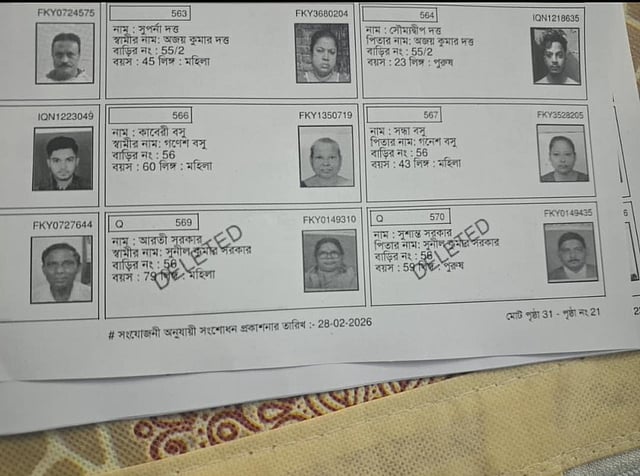 FKY0724575
563
FKY3680204
নাম : সুপর্না দত্ত
স্বামীর নাম: অজয় কুমার দত্ত
বাড়ির নং : 55/2
বয়স : 45 লিঙ্গ : মহিলা
564
IQN1218635
নাম : সৌম্যদ্বীপ দত্ত
পিতার নাম: অজয় কুমার দত্ত
বাড়ির নং : 55/2
বয়স : 23 লিঙ্গ : পুরুষ
IQN1223049
566
FKY1350719
নাম : কাবেরী বসু
স্বামীর নাম: গণেশ বসু
বাড়ির নং : 56
বয়স : 60 লিঙ্গ : মহিলা
567
FKY3528205
নাম : সন্ধা বসু
পিতার নাম: গনেশ বসু
বাড়ির নং : 56
বয়স : 43 লিঙ্গ : মহিলা
FKY0727644
Q 569
FKY0149310
নাম : আরতী সরকার
স্বামীর নাম: সুনীল কুমার সরকার
বাড়ির নং : 56
বয়স : 79 লিঙ্গ : মহিলা
DELETED
Q 570
FKY0149435
নাম : সুশান্ত সরকার
পিতার নাম: সুনীল কুমার সরকার
বাড়ির নং : 56
বয়স : 59 লিঙ্গ : পুরুষ
DELETED
# সংযোজনী অনুযায়ী সংশোধন প্রকাশনার তারিখ :- 28-02-2026
মোট পৃষ্ঠা 31 - পৃষ্ঠা নং 21